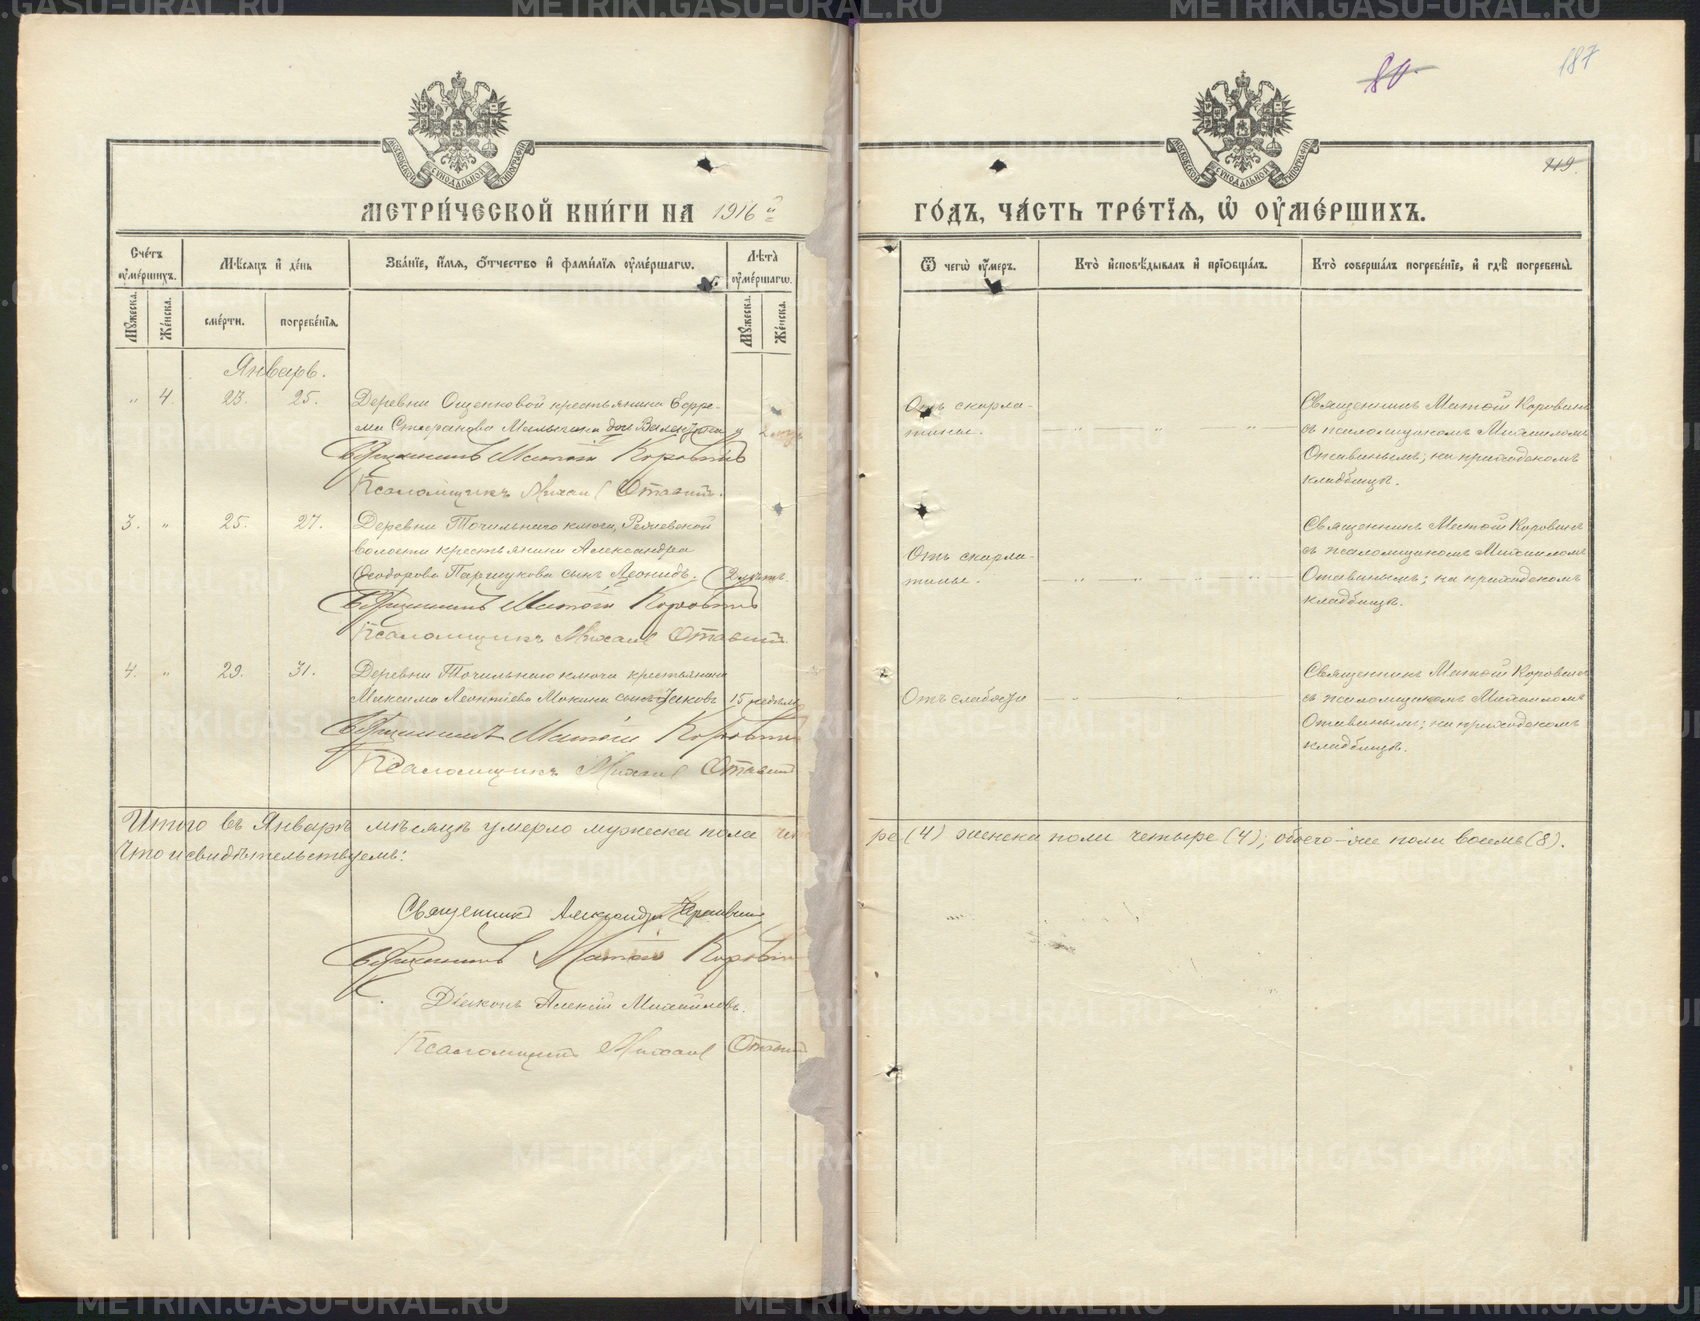 80.
187
119.
МОСКОВСКОЙ СѴНОДАЛЬНОЙ ТИПОГРАФІИ
МОСКОВСКОЙ СѴНОДАЛЬНОЙ ТИПОГРАФІИ
МЕТРИ́ЧЕСКОЙ КНИ́ГИ НА 1916й ГО́ДЪ, ЧА́СТЬ ТРЕ́ТЇѦ, Ѡ҆ ОУ҆МЕ́РШИХЪ.
Сче́тъ оу҆ме́ршихъ.
Мꙋ́жеска.
Же́нска.
Мѣ́сѧцъ и҆ де́нь
сме́рти.
погребе́нїѧ.
Зва́нїе, и҆́мѧ, ѻ҆́тчество и҆ фами́лїѧ оу҆ме́ршагѡ.
Лѣ́та оу҆ме́ршагѡ.
Мꙋ́жеска.
Же́нска.
Ѿ чегѡ̀ оу҆́меръ.
Кто̀ и҆сповѣ́дывалъ и҆ прїѻбща́лъ.
Кто̀ соверша́лъ погребе́нїе, и҆ гдѣ̀ погребены̀.
Январь.
" 4. 23. 25. Деревни Ощепковой крестьянина Ефре-
ма Стефанова Малыгина дочь Валентина
Священникъ Матѳій Коровинъ
Псаломщикъ Михаил Отавинъ.
Отъ скарла-
тины.
Священникъ Матѳій Коровинъ
съ псаломщикомъ Михаиломъ
Отавинымъ; на приходскомъ
кладбищѣ.
3. " 25. 27. Деревни Точильнаго ключа,
волости крестьянина Александра
Ѳеодорова Паршукова сынъ Леонидъ. 2 лѣтъ.
Священникъ Матѳій Коровинъ
Псаломщикъ Михаил Отавинъ.
Отъ скарла-
тины.
Священникъ Матѳій Коровинъ
съ псаломщикомъ Михаиломъ
Отавинымъ; на приходскомъ
кладбищѣ.
4. " 29. 31. Деревни Точильнаго ключа крестьянина
Максима Леонтіева Мокина сынъ Іаковъ 15 недѣль
Священникъ Матѳій Коровинъ
Псаломщикъ Михаил Отавинъ
Отъ слабости
Священникъ Матѳій Коровинъ
съ псаломщикомъ Михаиломъ
Отавинымъ; на приходскомъ
кладбищѣ.
Итого въ Январѣ мѣсяцѣ умерло мужеска пола четыре (4) женска пола четыре (4); обоего-же пола восемь (8).
Что и свидѣтельствуемъ:
Священникъ Александръ
Священникъ Матѳій Коровинъ
Діаконъ Алексій Михайловъ.
Псаломщикъ Михаил Отавинъ
METRIKI.GASU-URAL.RU